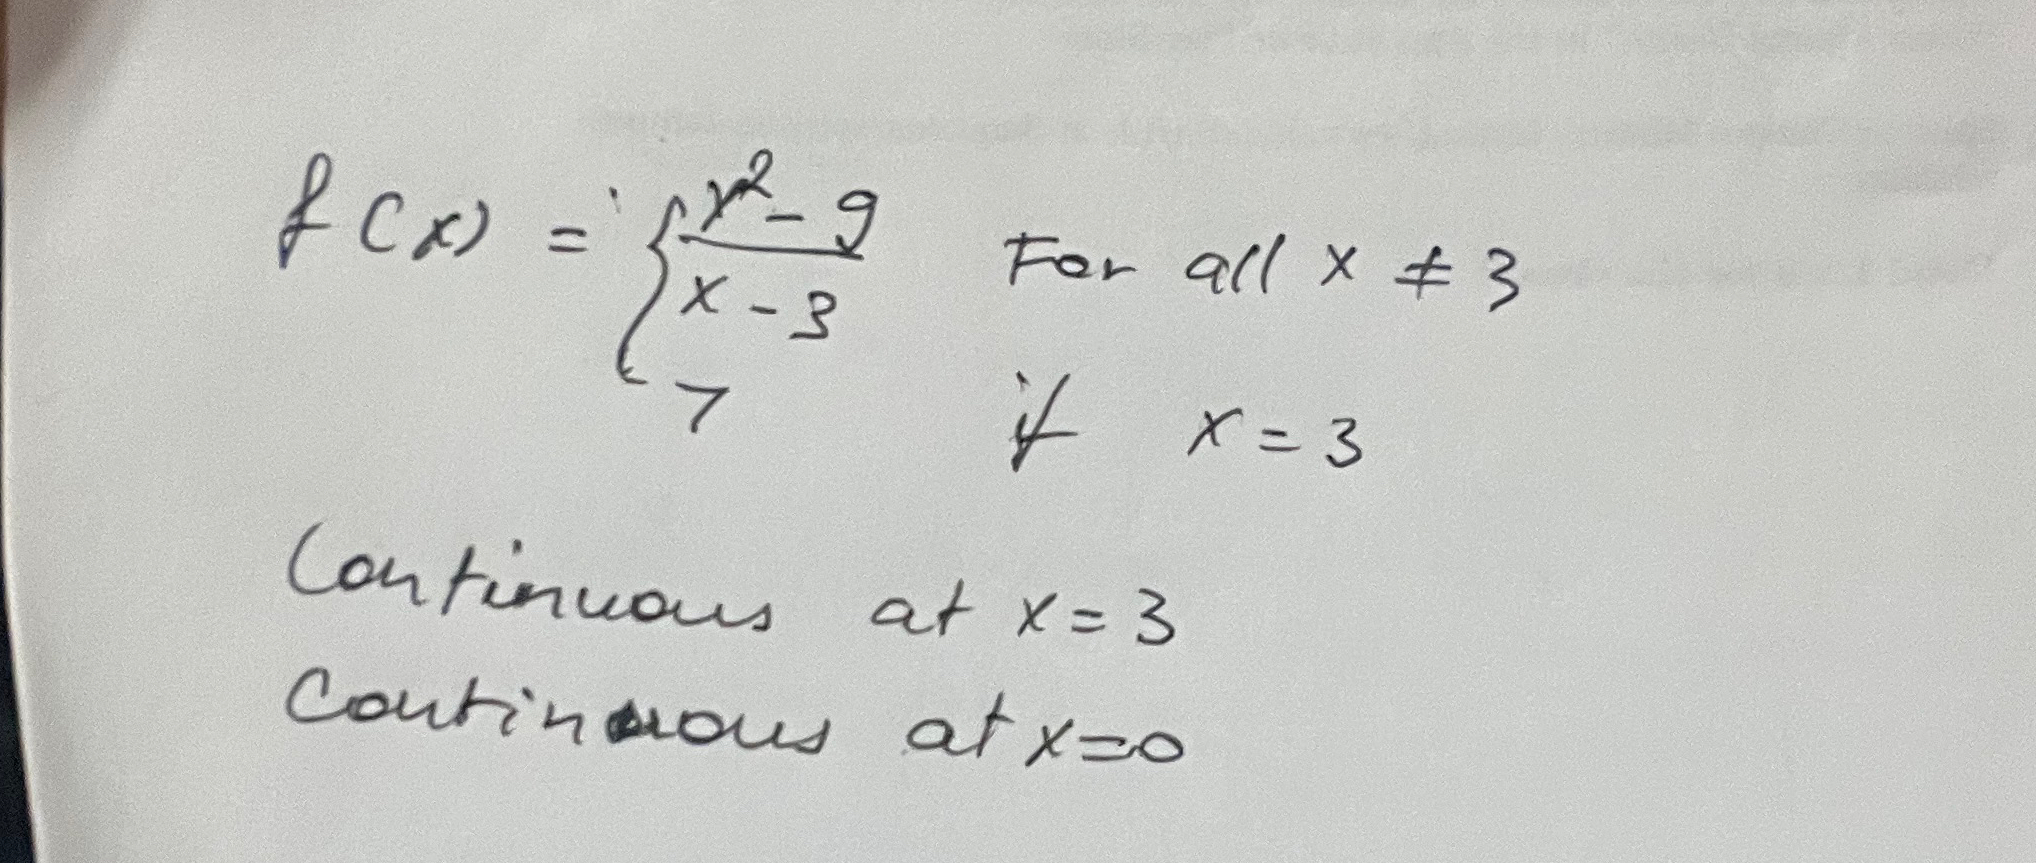 f(x) = { x² - 9 / x - 3 For all x ≠ 3
7 if x = 3
Continuous at x = 3
Continuous at x = 0